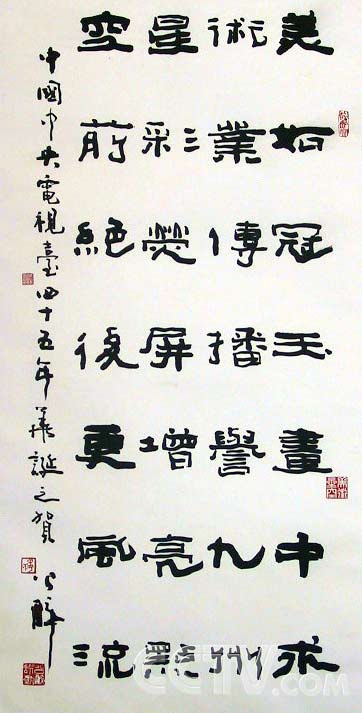 美如冠玉畫中求
術業傳播譽九州
星彩熒屏增亮點
空前絕後更風流
中國中央電視臺四十五年華誕之賀
CCTV.com